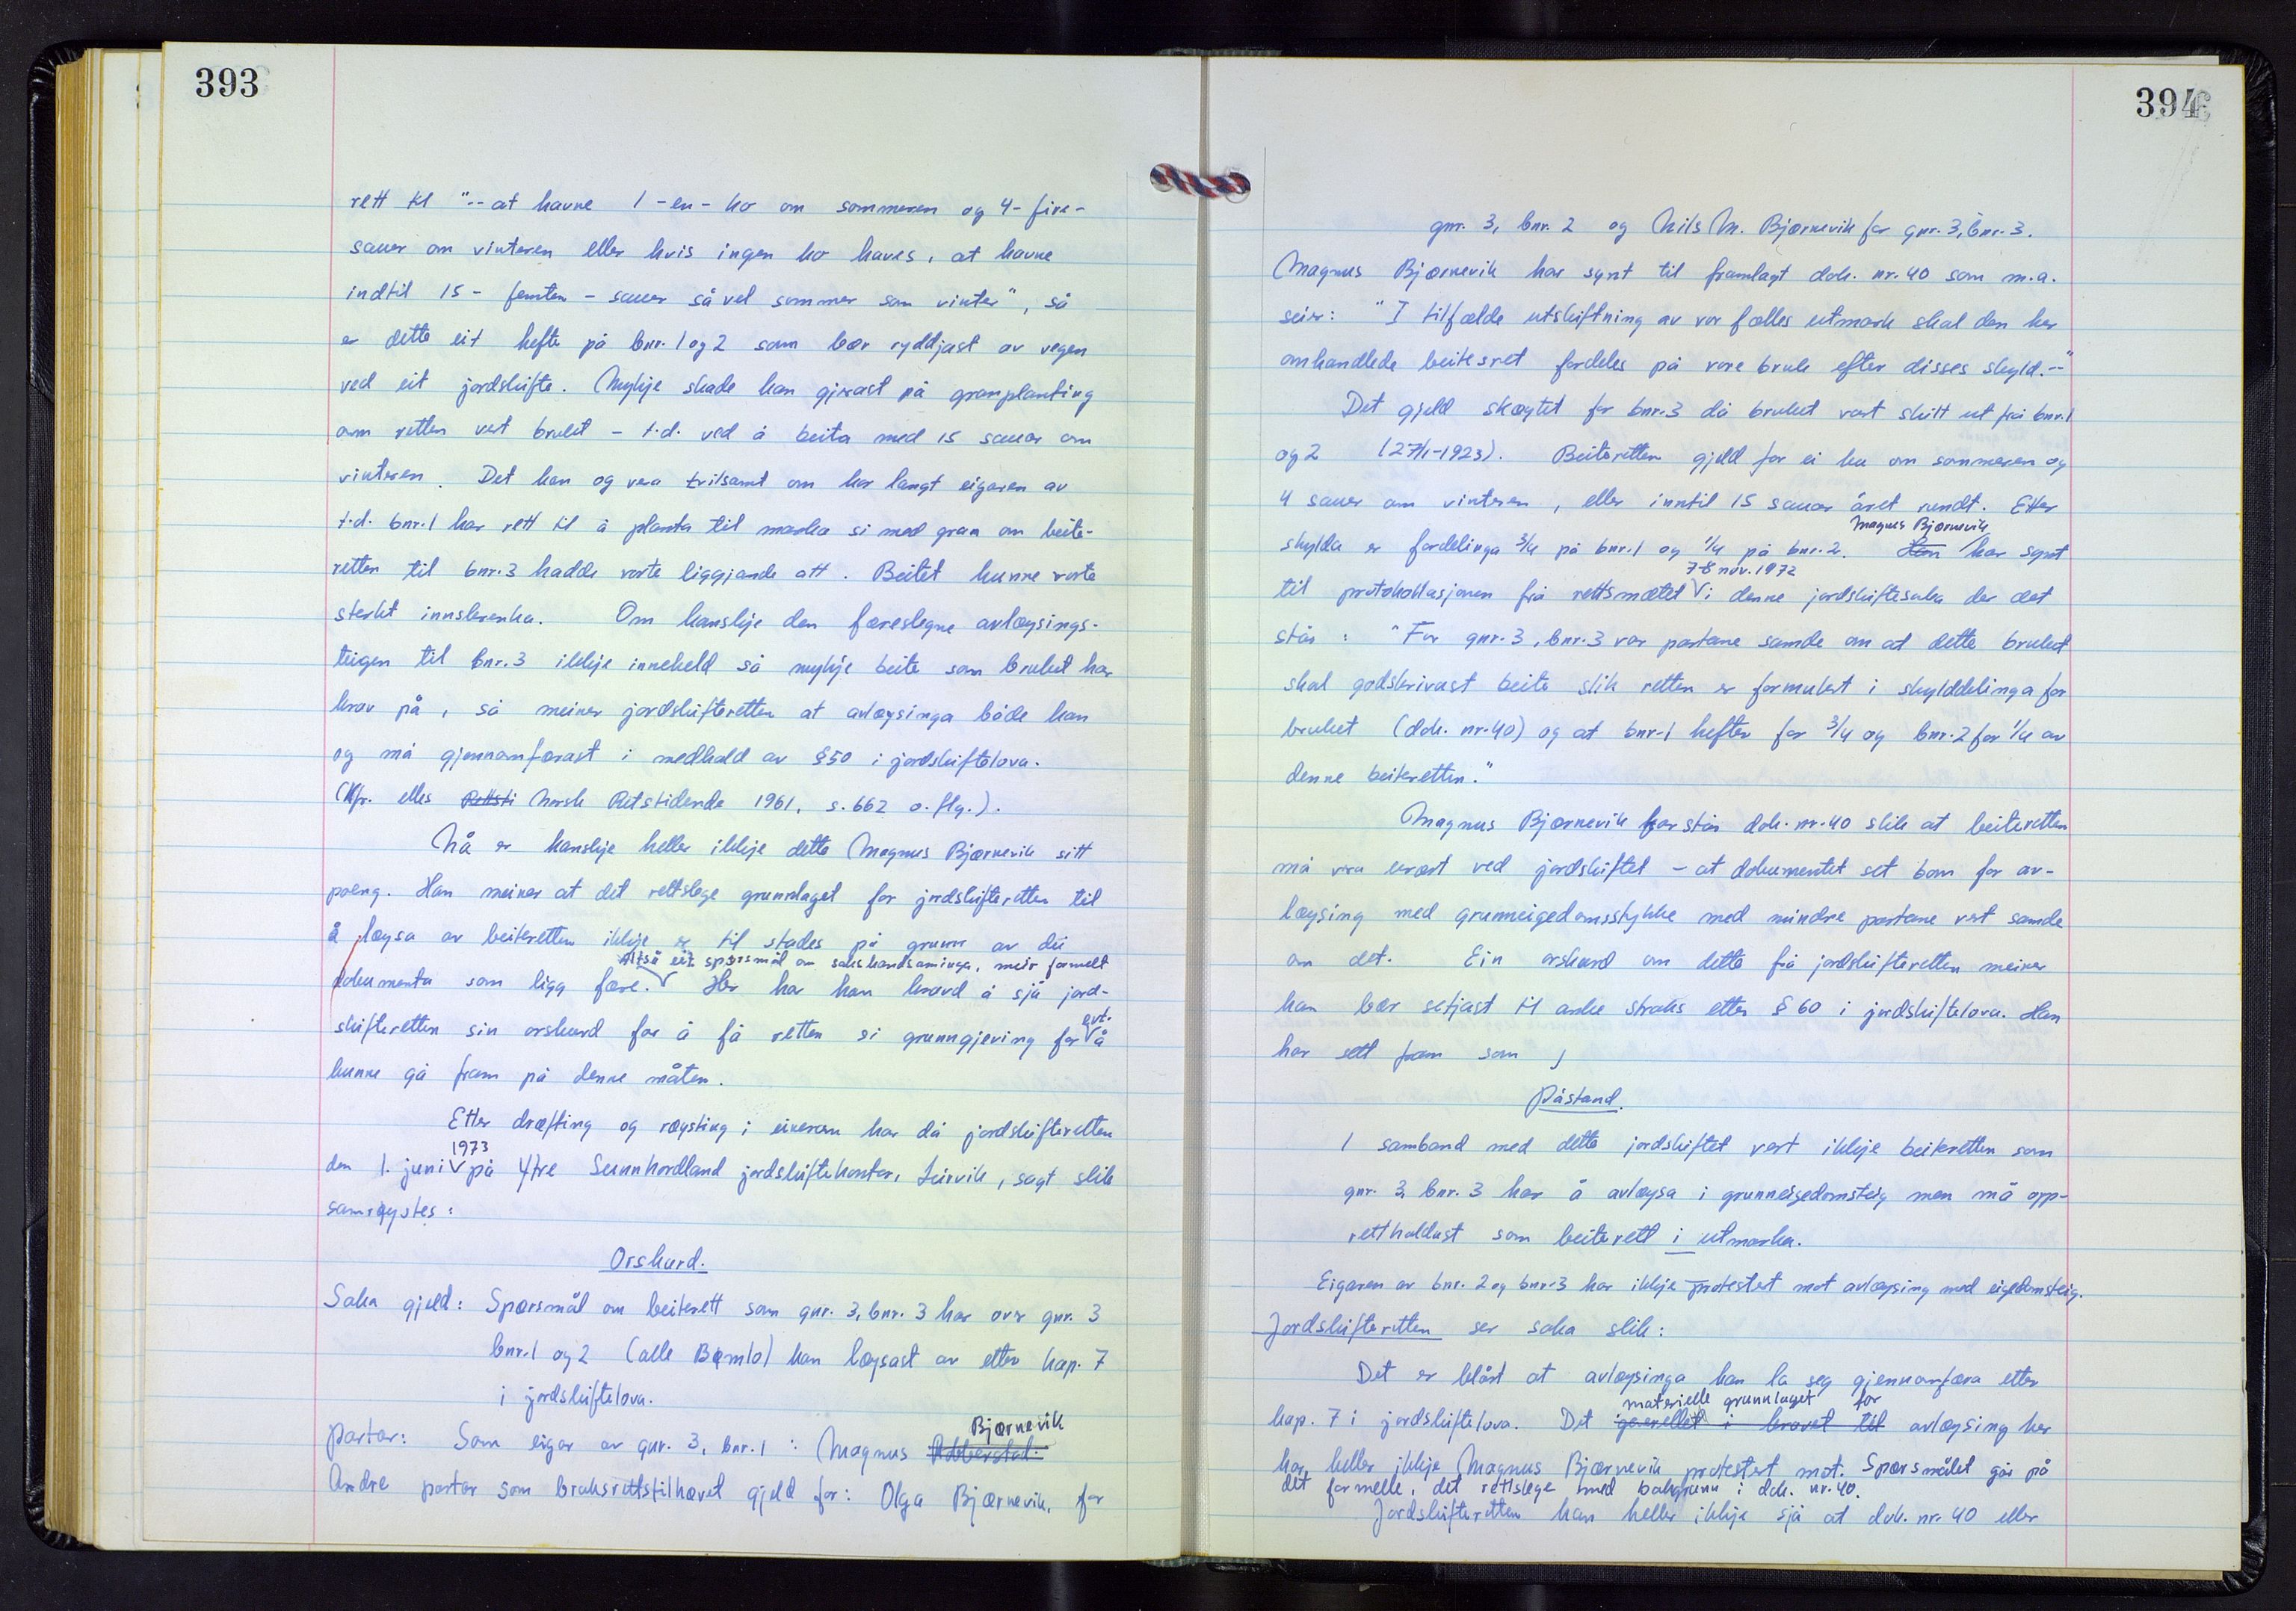 393
rett til "-- at havne 1 - en - ko om sommeren og 4 - fire -
sauer om vinteren eller hvis ingen ko haves, at havne
indtil 15 - femten - sauer så vel sommer som vinter", så
er dette eit hefte på bnr. 1 og 2 som bør ryddjast av vegen
ved eit jordskifte. Mykje skade kan gjerast på granplanting
om retten vert brukt - t.d. ved å beita med 15 sauer om
vinteren. Det kan og vera tvilsamt om kor langt eigaren av
t.d. bnr. 1 har rett til å planta til marka si med gran om beite-
retten til bnr. 3 hadde vorte liggjande att. Beitet kunne vorte
sterkt innskrenka. Om kanskje den føreslegne avløysings-
teigen til bnr. 3 ikkje inneheld så mykje beite som bruket har
krav på, så meiner jordskifteretten at avløysinga både kan
og må gjennomførast i medhald av § 50 i jordskiftelova.
(Kfr. elles Rettsti Norsk Retstidende 1961, s. 662 o. flg.).
Nå er kanskje heller ikkje dette Magnus Bjørnevik sitt
poeng. Han meiner at det rettslege grunnlaget for jordskifteretten til
å løysa av beiteretten ikkje er til stades på grunn av dei
Altså eit spørsmål om sakshandsaminga, meir formelt
dokumenta som ligg føre. V Her har han kravd å sjå jord-
skifteretten sin orskurd for å få retten si grunngjeving for V evt. å
kunne gå fram på denne måten.
Etter drøfting og røysting i einerom har då jordskifteretten
1973
den 1. juni V på Ytre Sunnhordland jordskiftekontor, Leirvik, sagt slik
samrøystes:
Orskurd.
Saka gjeld: Spørsmål om beiterett som gnr. 3, bnr. 3 har over gnr. 3
bnr. 1 og 2 (alle Bømlo) kan løysast av etter kap. 7
i jordskiftelova.
Bjørnevik
Partar: Som eigar av gnr. 3, bnr. 1: Magnus
Andre partar som bruksrettstilhøvet gjeld for: Olga Bjørnevik, for
394
gnr. 3, bnr. 2 og Nils M. Bjørnevik for gnr. 3, bnr. 3.
Magnus Bjørnevik har synt til framlagt dok. nr. 40 som m.a.
seier: "I tilfælde utskiftning av vor fælles utmark skal den her
omhandlede beitesret fordeles på vore bruk efter disses skyld.--"
Det gjeld skøytet for bnr. 3 då bruket vart skilt ut frå bnr. 1
og 2 (27/1-1923). Beiteretten gjeld for ei ku om sommeren og
4 sauer om vinteren, eller inntil 15 sauer året rundt. Etter
Magnus Bjørnevik
skylda er fordelinga 3/4 på bnr. 1 og 1/4 på bnr. 2. Han har synt
7-8 nov. 1972
til protokollasjonen frå rettsmøtet V i denne jordskiftesaka der det
står: "For gnr. 3, bnr. 3 var partane samde om at dette bruket
skal godskrivast beite slik retten er formulert i skylddelinga for
bruket (dok. nr. 40) og at bnr. 1 hefter for 3/4 og bnr. 2 for 1/4 av
denne beiteretten."
Magnus Bjørnevik forstår dok. nr. 40 slik at beiteretten
må vera urørt ved jordskiftet - at dokumentet set bom for av-
løysing med grunneigedomsstykke med mindre partane vert samde
om det. Ein orskurd om dette frå jordskifteretten meiner
han bør setjast til anke straks etter § 60 i jordskiftelova. Han
har sett fram som
Påstand.
I samband med dette jordskiftet vert ikkje beiteretten som
gnr. 3 bnr. 3 har å avløysa i grunneigedomsteig men må opp-
rettholdast som beiterett i utmarka.
Eigaren av bnr. 2 og bnr. 3 har ikkje protestert mot avløysing med eigedomsteig.
Jordskifteretten ser saka slik:
Det er klårt at avløysinga kan la seg gjennomføra etter
materielle grunnlaget for
kap. 7 i jordskiftelova. Det generellet i kravet til avløysing her
har heller ikkje Magnus Bjørnevik protestert mot. Spørsmålet går på
det formelle, det rettslege med bakgrunn i dok. nr. 40.
Jordskifteretten kan heller ikkje sjå at dok. nr. 40 eller